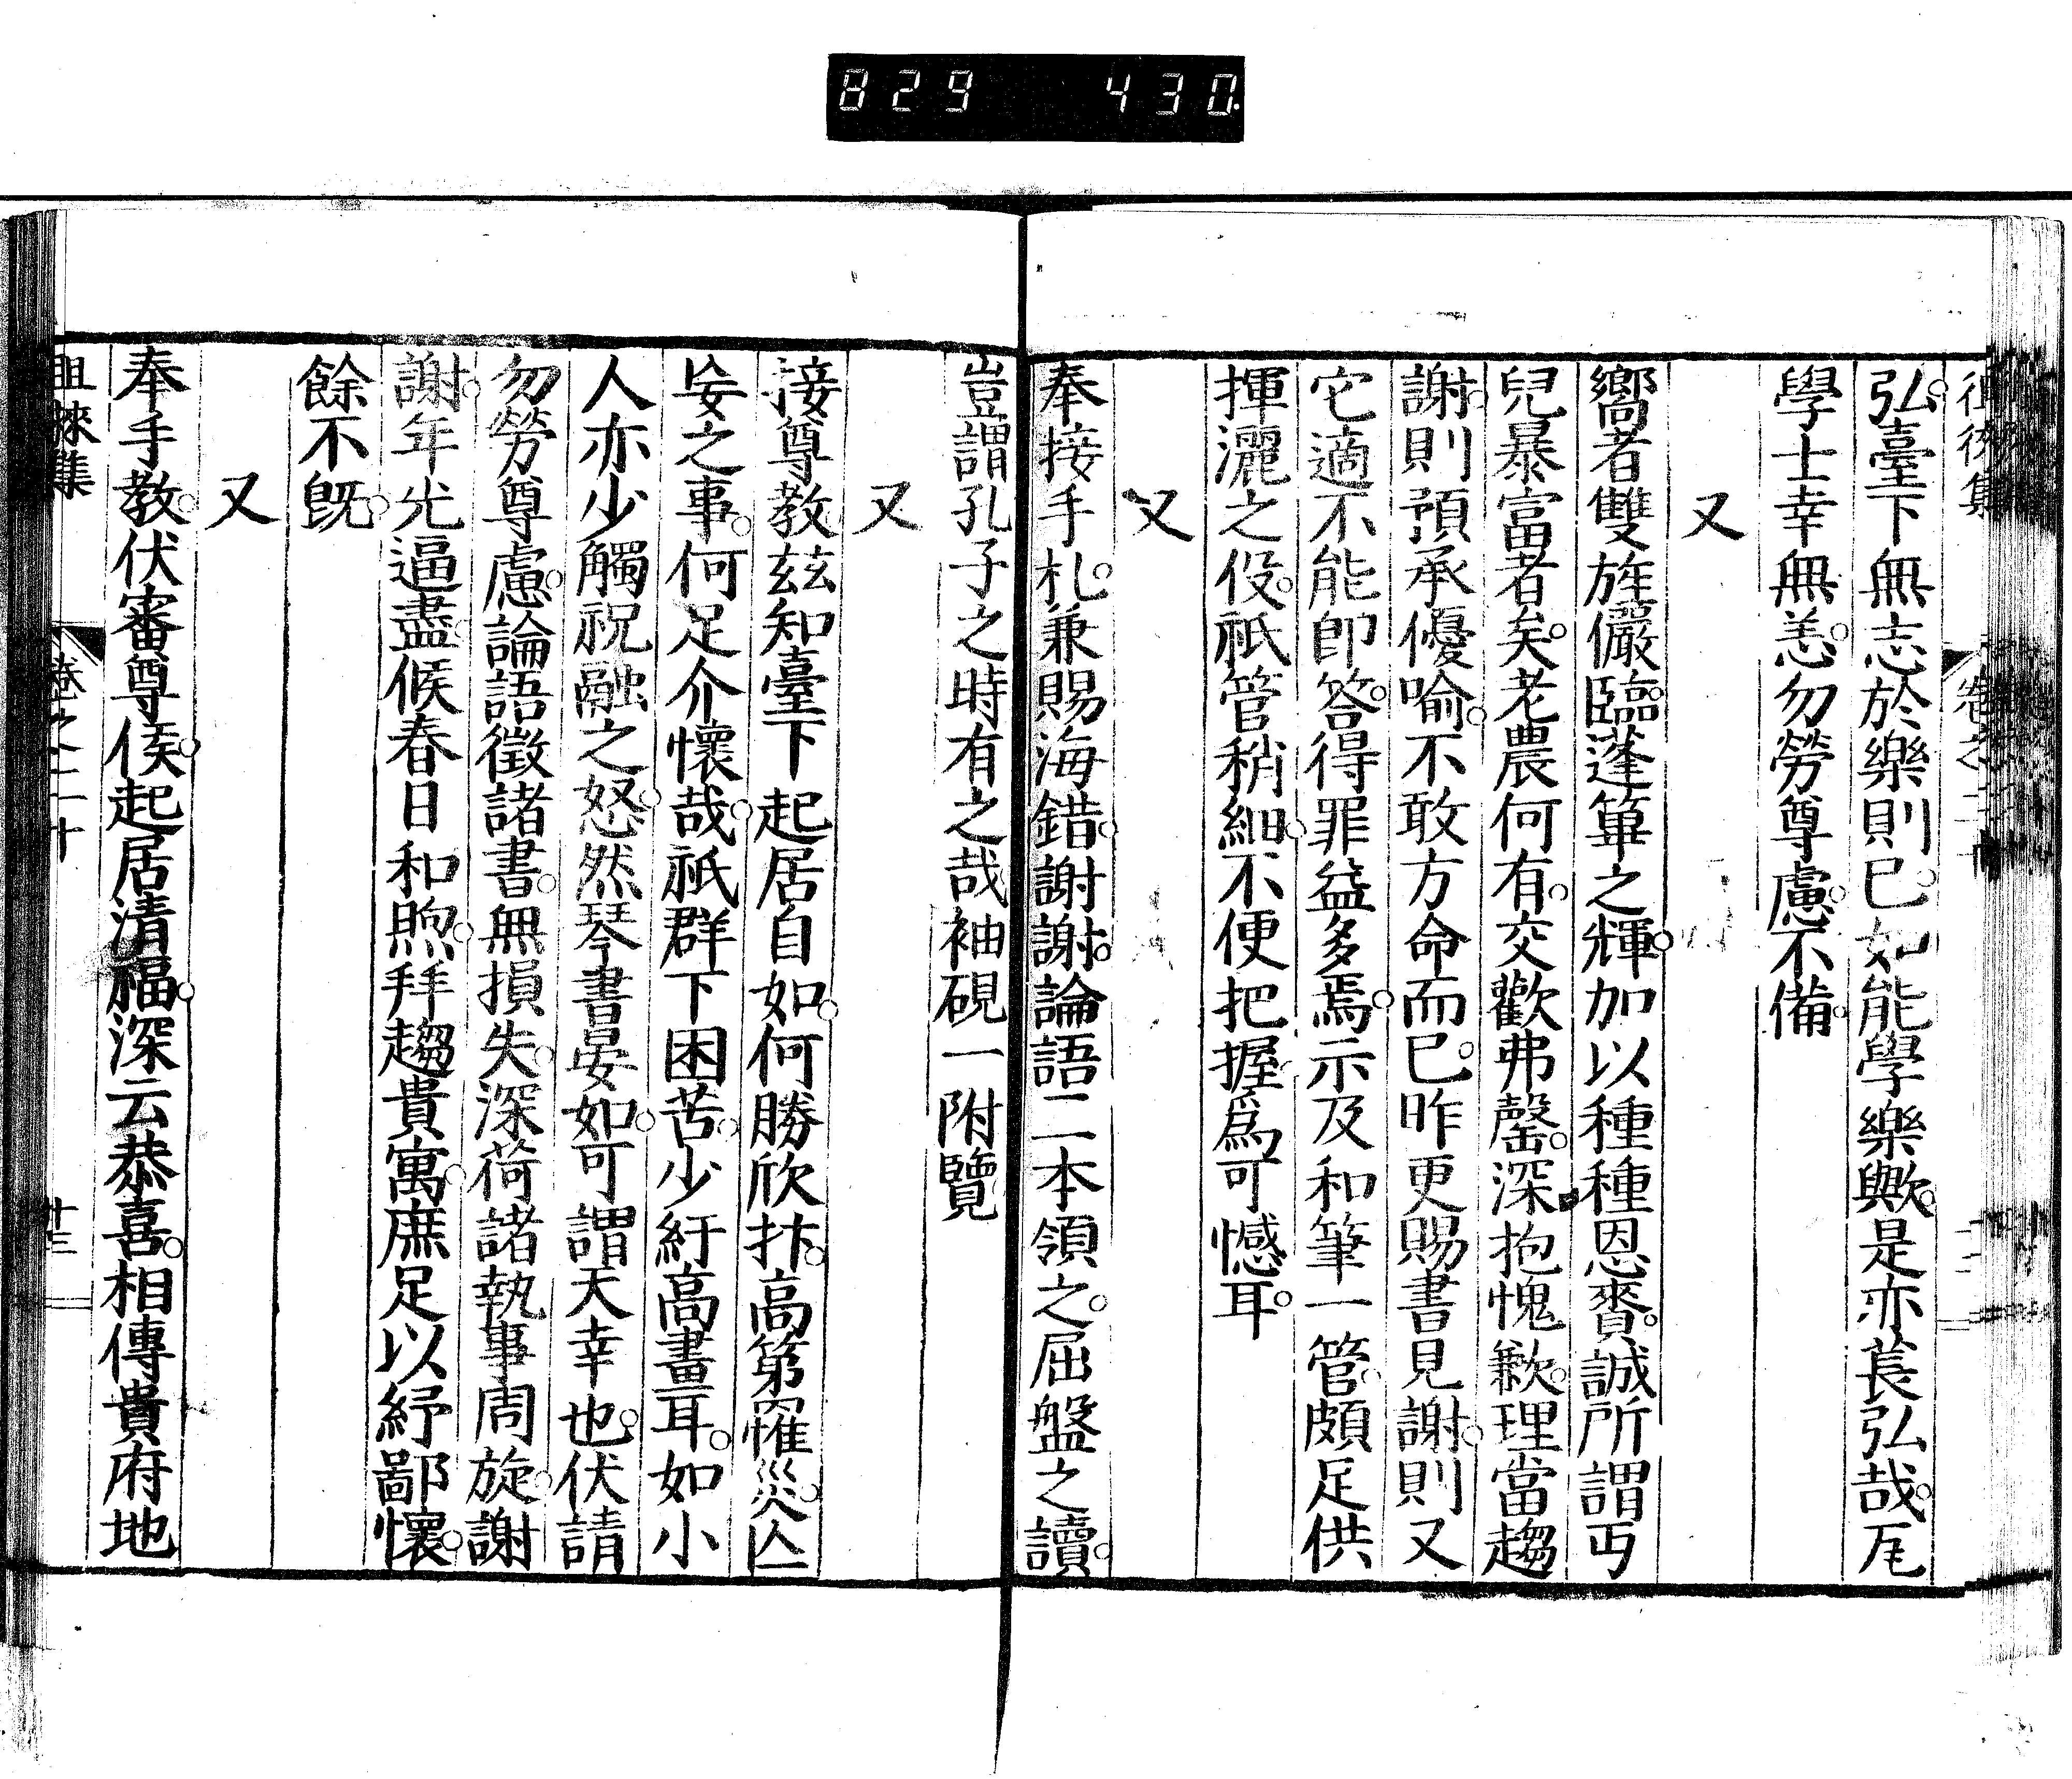 829 430
弘。臺下無志於樂則已。如能學樂歟。是亦萇弘哉。厇
學士幸無恙。勿勞尊慮。不備。
又
嚮者雙旌儼臨。蓬篳之輝。加以種種恩賚。誠所謂丐
兒暴富者矣。老農何有。交歡弗罄。深抱愧歉。理當趨
謝。則預承優喻。不敢方命而已。昨更賜書見謝。則又
它適不能卽答。得罪益多焉。示及和筆一管。頗足供
揮灑之役。祇管稍細。不便把握爲可憾耳。
又
奉接手札。兼賜海錯。謝謝。論語二本領之。屈盤之讀。
豈謂孔子之時有之哉袖硯一附覽
又
接尊教玆知臺下起居自如。何勝欣抃。高第罹災。亾
妄之事。何足介懷哉。祇群下困苦。少紆高畫耳。如小
人亦少觸祝融之怒。然琴書晏如。可謂天幸也。伏請
勿勞尊慮。論語徵諸書。無損失。深荷諸執事周旋。謝
謝。年光逼盡。候春日和煦。拜趨貴寓。庶足以紓鄙懷。
餘不旣。
又
奉手教。伏審尊候。起居清福。深云恭喜。相傳貴府地
徂徠集 卷之二十 十三